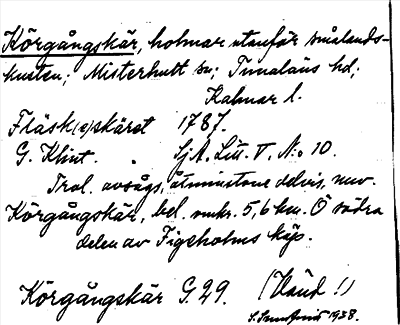 Körgångskär, holmar utanför smålands-
kusten; Misterhult sn; Tunaläns hd;
Kalmar l.
Fläsk(e)skäret 1787.
G. Klint. SjA. Litt. V. N:o 10.
Trol. avsågs, åtminstone delvis, nuv.
Körgångskär, bel. omkr. 5,6 km. Ö södra
delen av Figeholms köp.
Körgångskär G.29. (Vänd!)
1938.